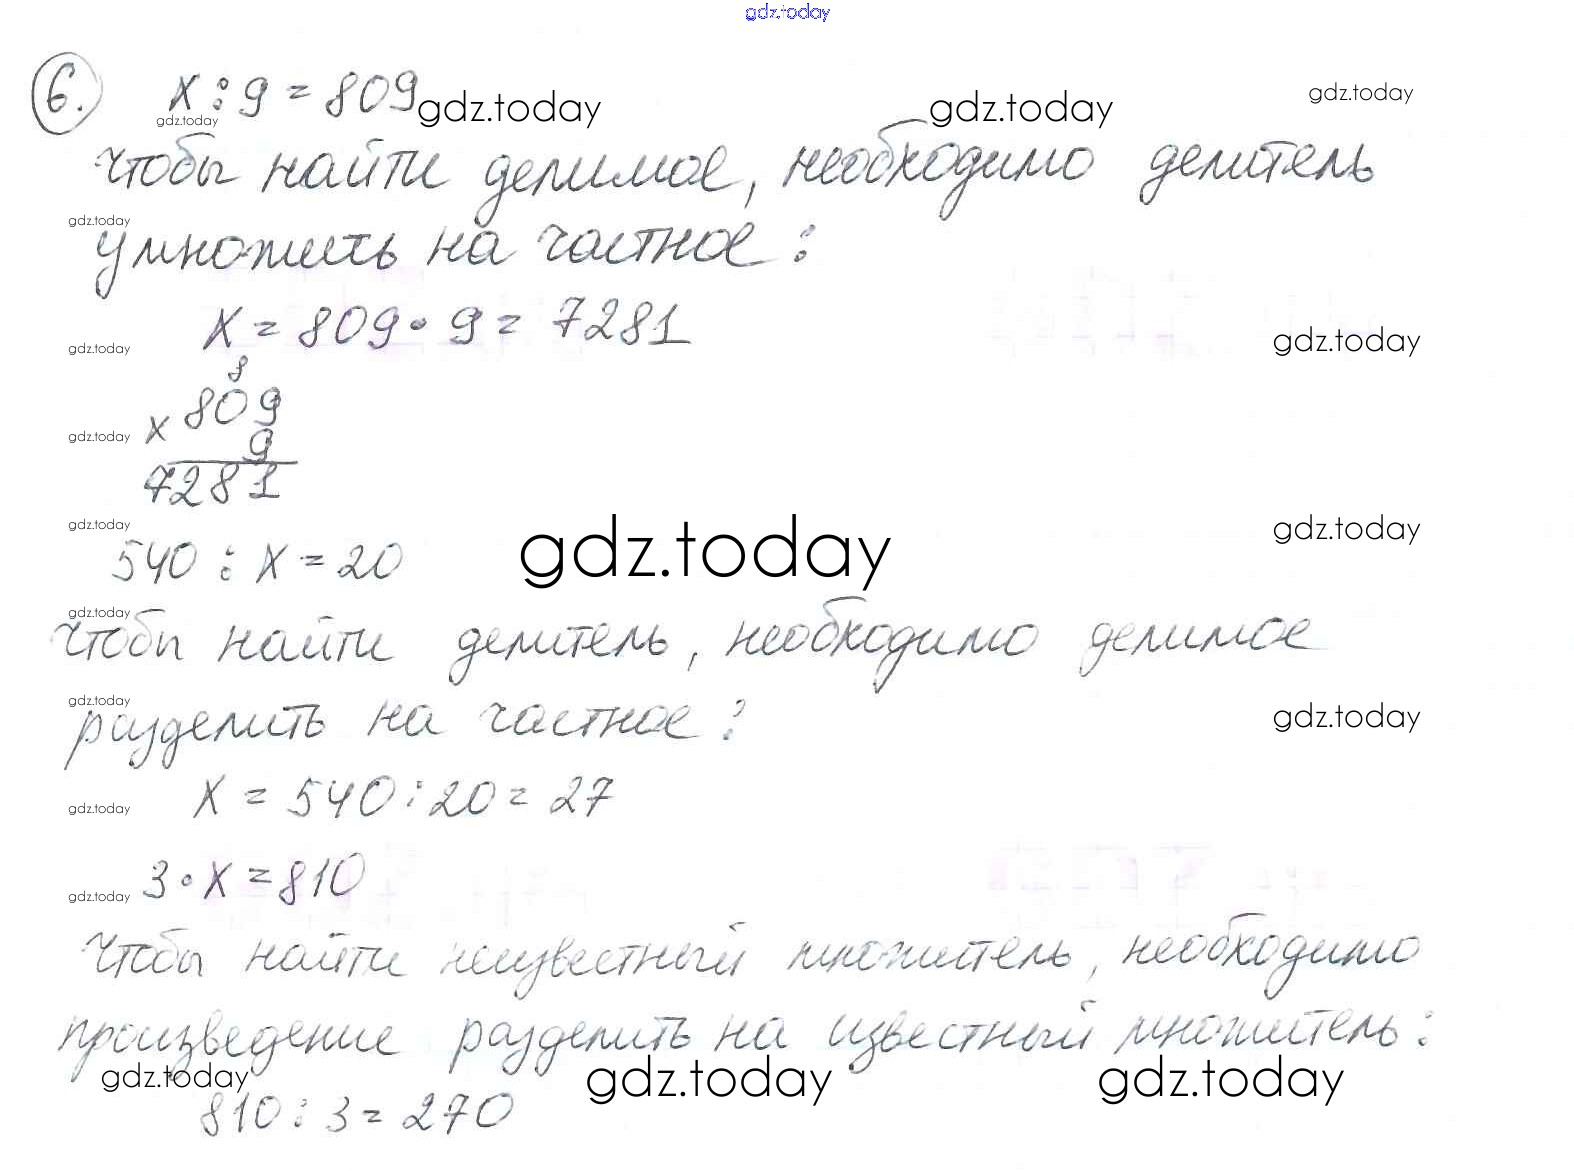 gdz.today
6. x : 9 = 809 gdz.today gdz.today gdz.today
gdz.today
Чтобы найти делимое, необходимо делитель
gdz.today
умножить на частное:
x = 809 · 9 = 7281
gdz.today gdz.today
8
x 809
gdz.today
9
7281
gdz.today gdz.today gdz.today
540 : x = 20
gdz.today
Чтобы найти делитель, необходимо делимое
gdz.today gdz.today
разделить на частное:
x = 540 : 20 = 27
gdz.today
3 · x = 810
gdz.today
Чтобы найти неизвестный множитель, необходимо
произведение разделить на известный множитель:
gdz.today gdz.today gdz.today
810 : 3 = 270